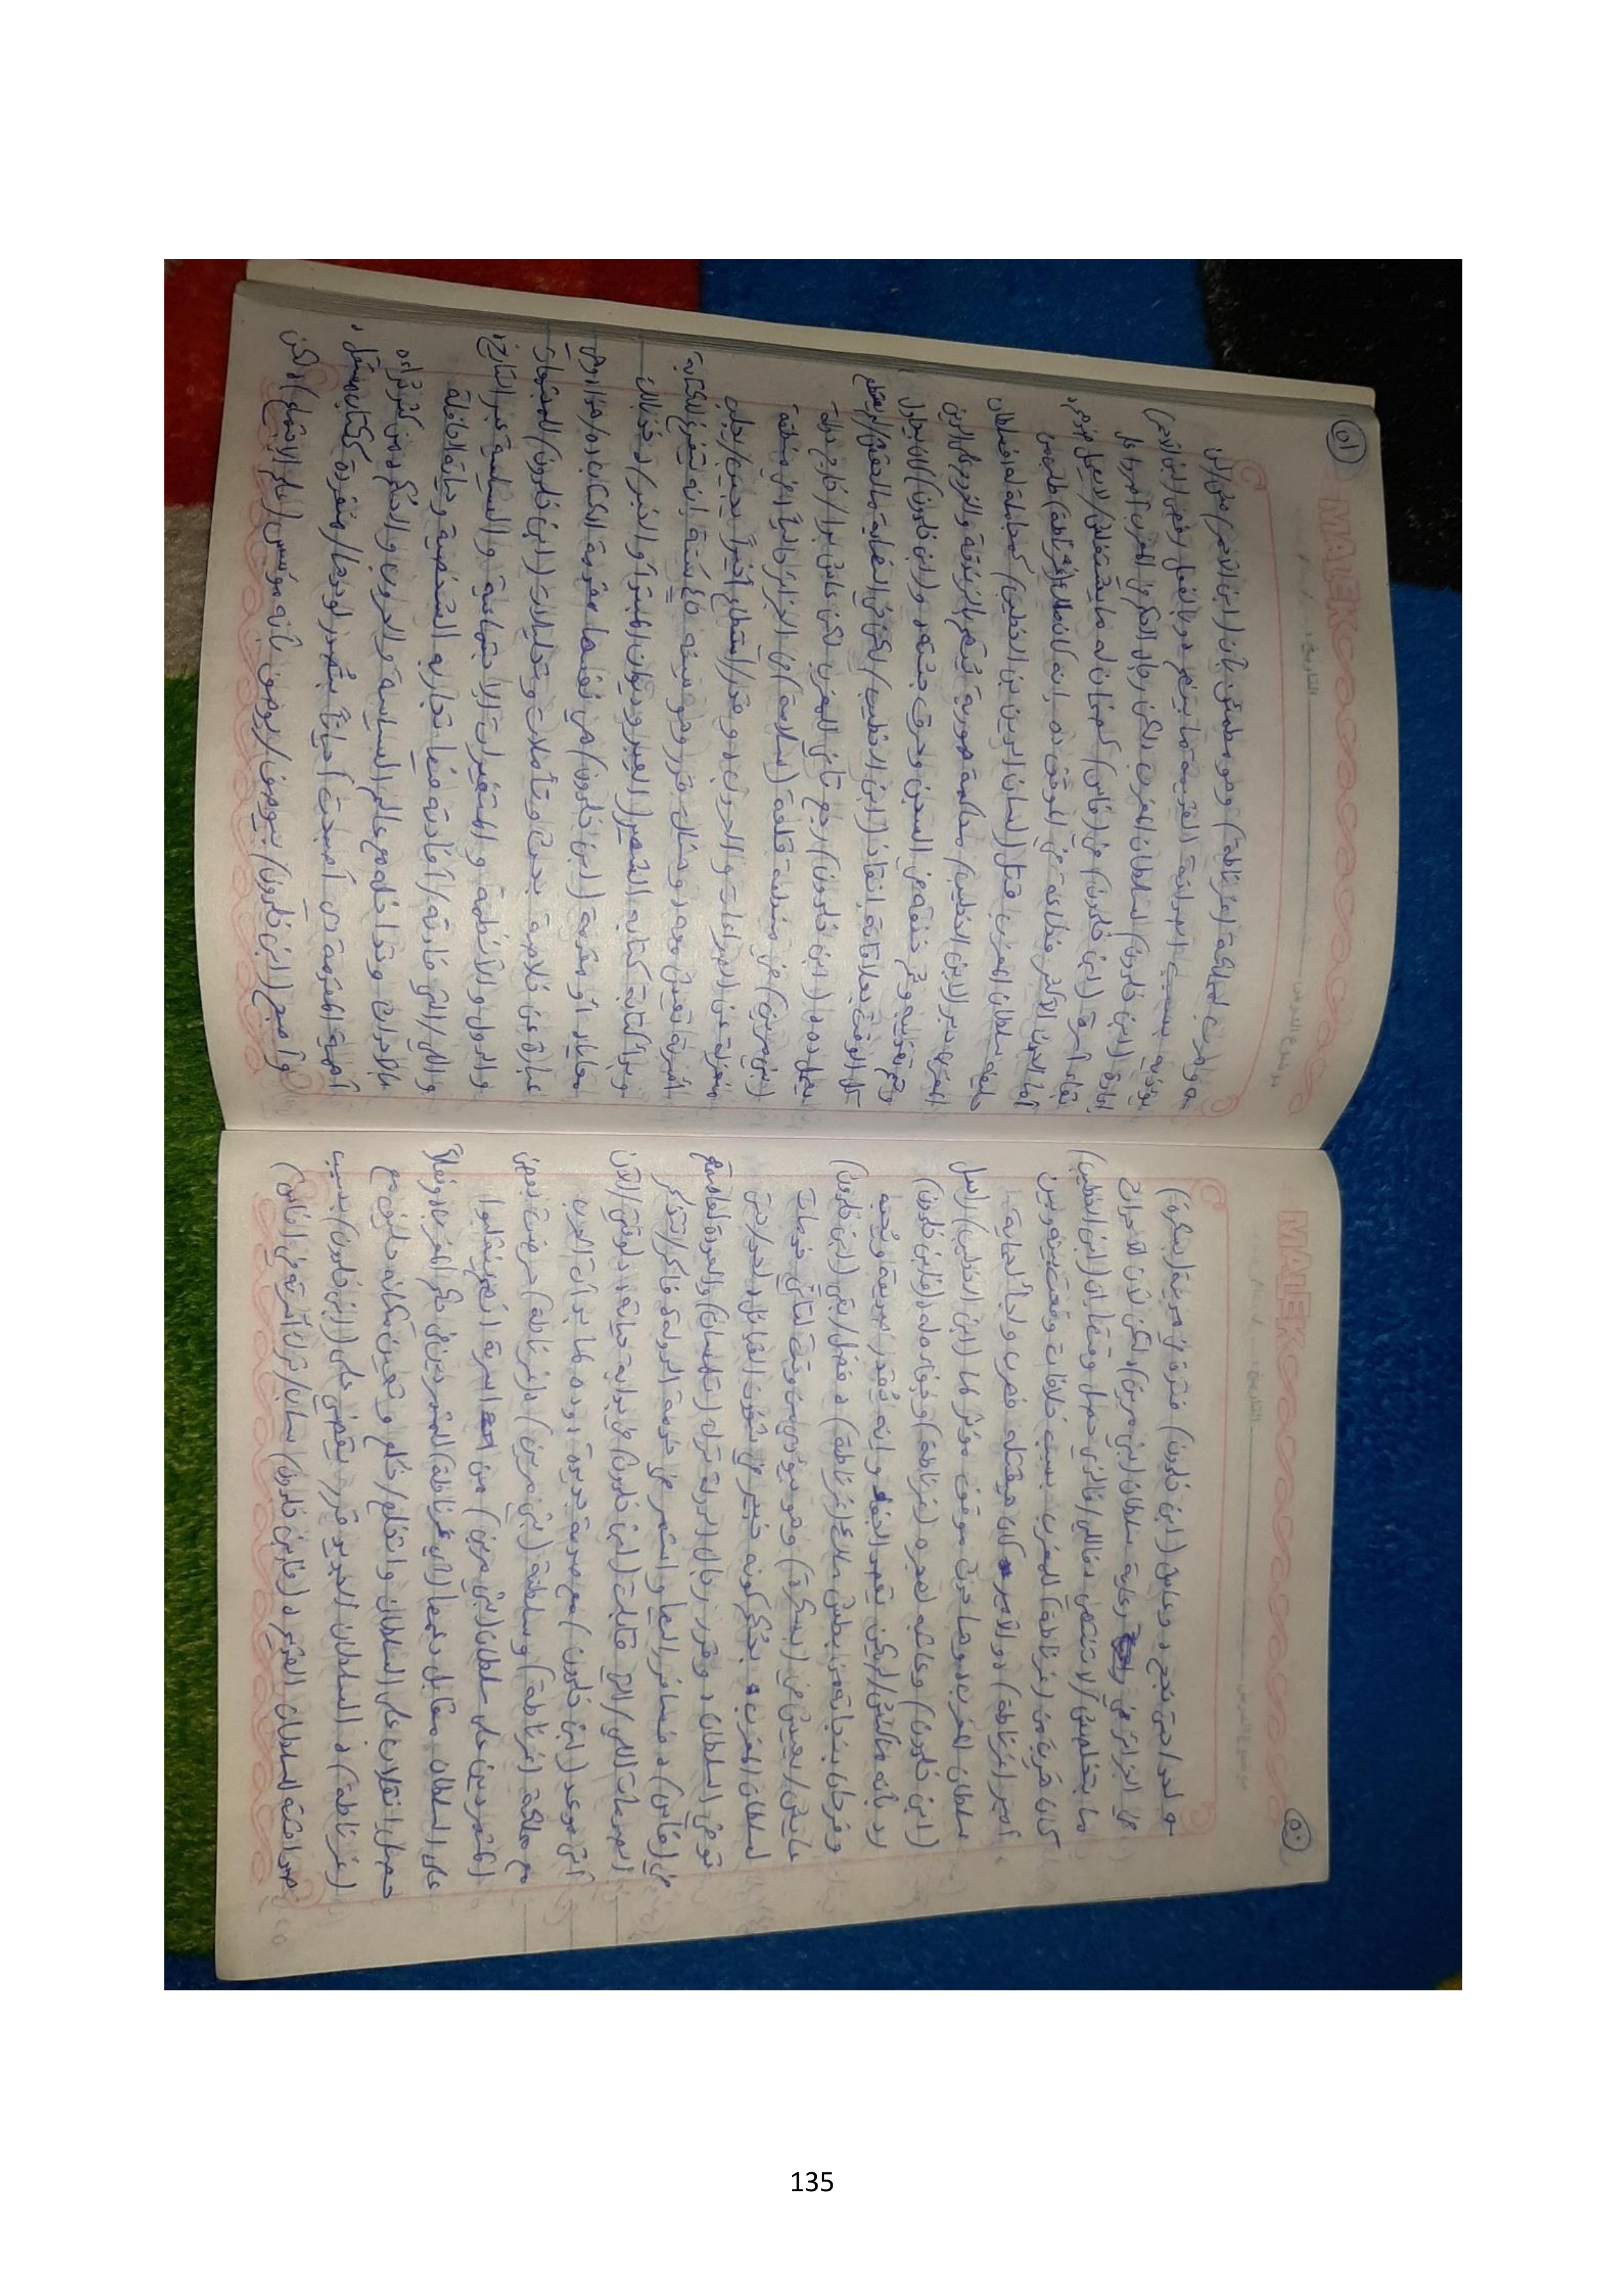 MALEK
التاريخ:
موضوع الدرس
٥٠
(ابن خلدون) فترة
في الجزائر في رعاية سلطان (بني مرين) ولكن لأن الأحزان
ما بتخلصش/لا تنتهي، فاللي/فالذي حصل وقتها إن (ابن الخطيب)
كان هرب من (غرناطة) للمغرب بسبب خلافات وقعت بينه وبين
أمير (غرناطة) والأمير كان هيقتله فهرب ولجأ لحماية
سلطان المغرب، وهنا حدث موقف مؤثر لما (ابن الخطيب) أرسل
(ابن خلدون) وعاتبه لهجره (غرناطة) وخوفه له، و(ابن خلدون)
رد بأنه ماكنش/لم يكن يقصد الجفاء وإنه يُقدر صديقه ويُحبه
وفرحان بنجاته من بطش ملك (غرناطة)، فضل/بقى (ابن خلدون)
عايش/يعيش في (بسكرة) وهو بيؤدي من وقت لتاني خدمات
لسلطان المغرب، بحُكم كونه خبير في شؤون القبائل، لحد/حتى
توفى السلطان، وقرر رجال الدولة ترك (تلمسان) والعودة لعاصمتهم
في (فاس)، فسافر إليها واستمر في خدمة الدولة، فاكر/تتذكر
الصدمات اللي/التي قابلت (ابن خلدون) في بداية حياته، دلوقتي/الآن
أتى موعد (ابن خلدون) مع صدمة جديدة، وده لما بدأت الحرب
مع مملكة (غرناطة) وسلطنة (بني مرين)، (غرناطة) حرضت بعض
المتمردين على سلطان (بني مرين) من أسرته أنهم ينقلبوا
على السلطان مقابل دعمها/أي (غرناطة) للمتمردين في حكم المغرب، وفعلاً
حصل انقلاب على السلطان وانخلع/خُلع وتعين مكانه حليف مع
(غرناطة)، السلطان الجديد قرر يقبض على (ابن خلدون) بسبب
صداقته للسلطان القديم، و(ابن خلدون) ساب/ترك أسرته في (فاس)
MALEK
التاريخ:
موضوع الدرس
٥١
وهرب لمملكة (غرناطة) وهو مطمئن بأن (ابن الأحمر) مش/لن
يؤذيه بسبب الصداقة القديمة ما بينهم، وبالفعل رفض (ابن الأحمر)
إعادة (ابن خلدون) لسلطان المغرب، لكن رجال الحكم في المغرب أصروا على
بقاء أسرة (ابن خلدون) في (فاس) كضمان له ما يشتغلش/لا يعمل ضدهم،
أما الحدث الأكثر فظاعة في الوقت ده، إنه كان ملك (غرناطة) طلب من
حليفه سلطان المغرب قتل (لسان الدين بن الخطيب) كمجاملة له، فسلطان
المغرب دبر لابن الخطيب محاكمة صورية تُتهم بالزندقة والخروج عن الدين
وتم تعذيبه وتم خنقه في السجن وحرق جثته، و(ابن خلدون) كان يحاول
تلك الوقت بعلاقاته إنقاذ (ابن الخطيب) لكن في النهاية ماعرفش/لم يستطع
يعمل ده، (ابن خلدون) رجع تاني للمغرب لكن عاش برا/خارج دولة
(بني مرين) في منطقة قلعة (سلامة) في الجزائر حالياً في منطقة
منعزلة عن الصراعات والحروب، وقدر/استطاع أخيراً يجيب/يجلب
أسرته تعيش معه، وهناك قرر وهو سنه ٤٥ سنة إنه يتفرغ للكتابة
وبدأ كتابة كتابه الشهير (العبر وديوان المبتدأ والخبر)، خد بالك
معايا، أو مقدمة (ابن خلدون) هي نفسها مقدمة الكتاب ده/هذا، وهي
عبارة عن خلاصة بحث وتأملات وتحليلات (ابن خلدون) للمجتمعات
والدول والأنظمة والمتغيرات الاجتماعية والسياسية عبر التاريخ،
واللي/التي فادته/أفادته فيها تجاربه الشخصية وحياته الحافلة
بالأحداث وتداخله مع عالم السياسة والحروب والحُكم، ومن كتر/كثرة
أهمية المقدمة دي أصبحت أحياناً بتُصدر لوحدها/منفردة ككتاب مستقل،
وأصبح (ابن خلدون) بيوصف/يوصف بأنه مؤسس (علم الاجتماع)، لكن
135